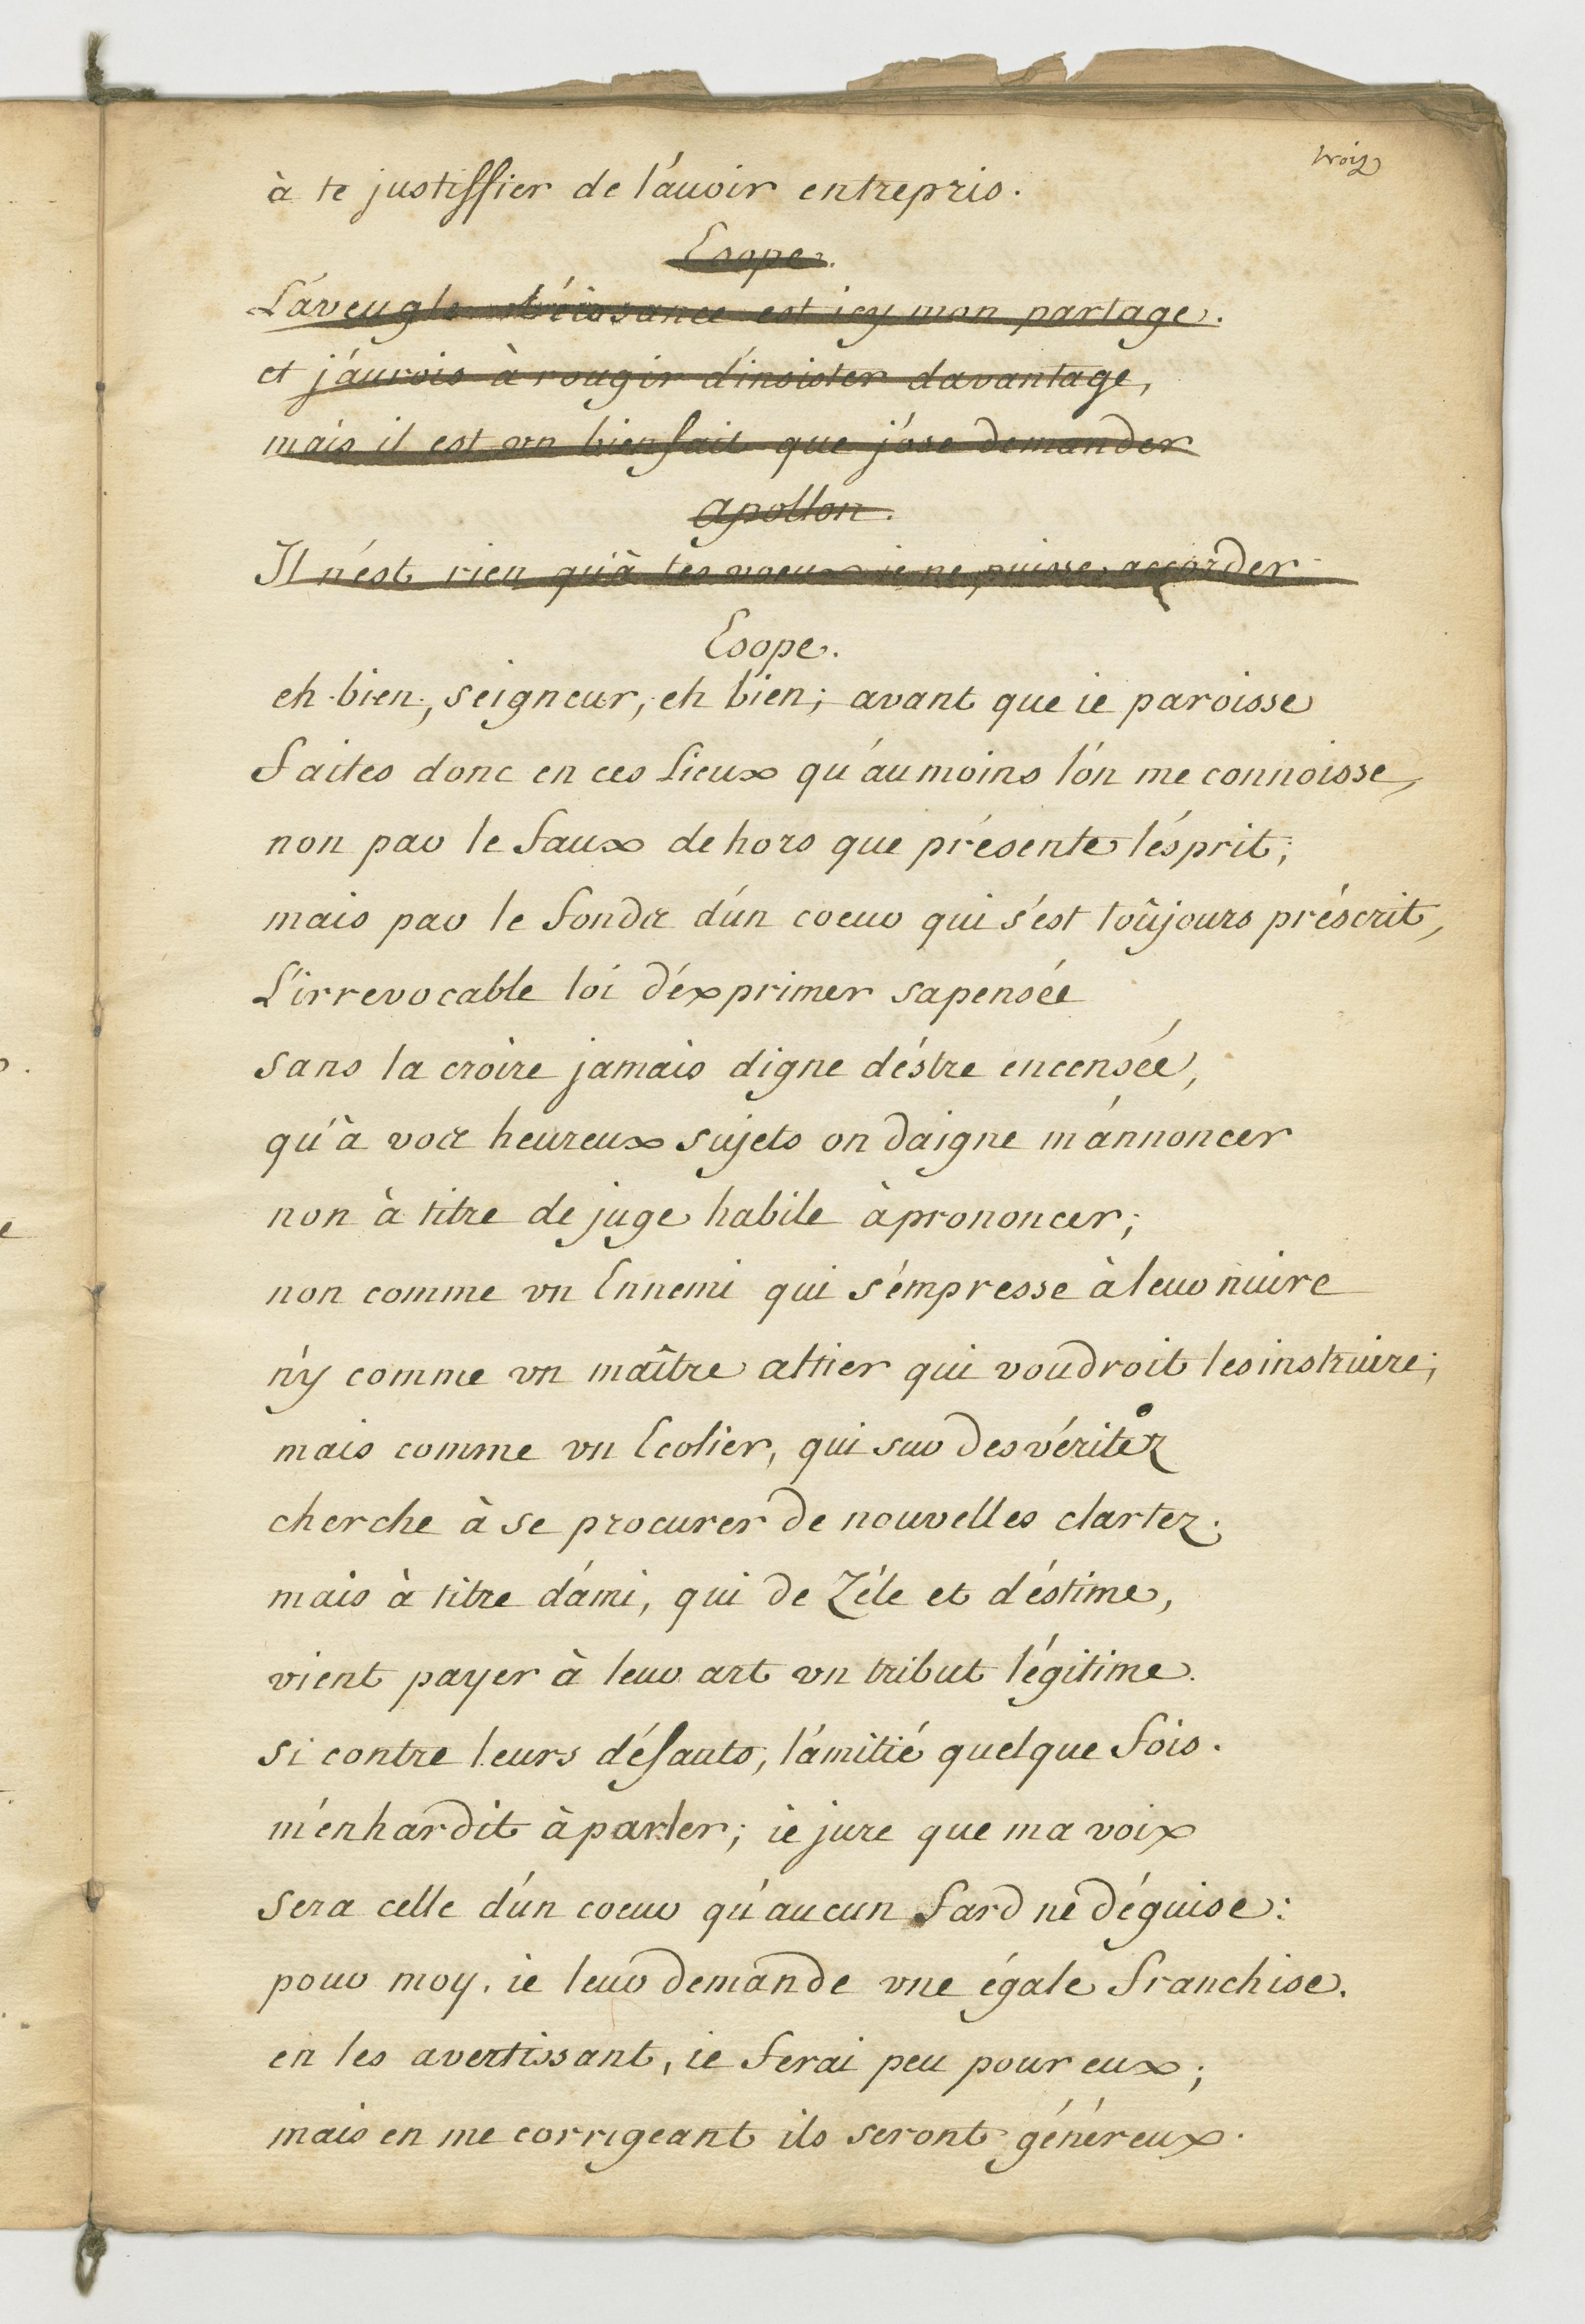 troiz
à te justiffier de l'auoir entrepris.
Esope.
L'aveugle obéissance est icy mon partage.
et j'aurois à rougir d'insister davantage,
mais il est vn bienfait que j'ose demander
apollon.
Il n'est rien qu'à tes voeux ie ne puisse accorder
Esope.
eh bien, seigneur, eh bien; avant que ie paroisse
faites donc en ces Lieux qu'au moins l'on me connoisse,
non par le faux dehors que présente l'ésprit;
mais par le fonds d'un coeur qui s'est toûjours préscrit,
L'irrevocable loi d'éxprimer sa pensée
sans la croire jamais digne d'éstre encensée,
qu'à vos heureux sujets on daigne m'annoncer
non à titre de juge habile à prononcer;
non comme vn Ennemi qui s'émpresse à leur nuire
n'y comme vn maître altier qui voudroit les instruire;
mais comme vn Ecolier, qui sur des véritez
cherche à se procurer de nouvelles clartez.
mais à titre d'ami, qui de Zéle et d'éstime,
vient payer à leur art vn tribut légitime.
si contre leurs défauts, l'amitié quelque fois.
m'enhardit à parler; ie jure que ma voix
sera celle d'un coeur qu'aucun fard ne déguise:
pour moy, ie leur demande vne égale franchise.
en les avertissant, ie ferai peu pour eux;
mais en me corrigeant ils seront généreux.